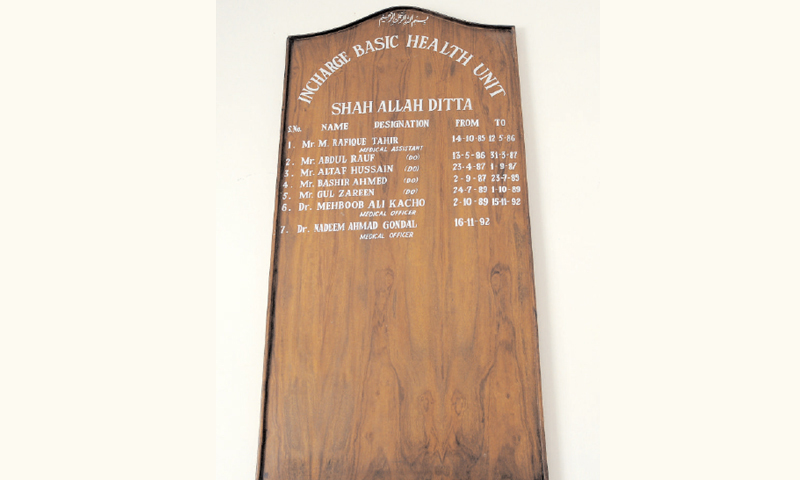 بسم الله الرحمن الرحیم
INCHARGE BASIC HEALTH UNIT
SHAH ALLAH DITTA
S.No. NAME DESIGNATION FROM TO
1. Mr M. RAFIQUE TAHIR 14-10-85 12 5-86
MEDICAL ASSISTANT
2. Mr. ABDUL RAUF (DO) 13-5-86 31-5-87
3. Mr. ALTAF HUSSAIN (DO) 23-4-87 1-9-87
4. Mr. BASHIR AHMED (DO) 2-9-87 23-7-89
5. Mr. GUL ZAREEN (DO) 24-7-89 1-10-89
6. Dr. MEHBOOB ALI KACHO 2-10-89 15-11-92
MEDICAL OFFICER
7. Dr. NADEEM AHMAD GONDAL 16-11-92
MEDICAL OFFICER